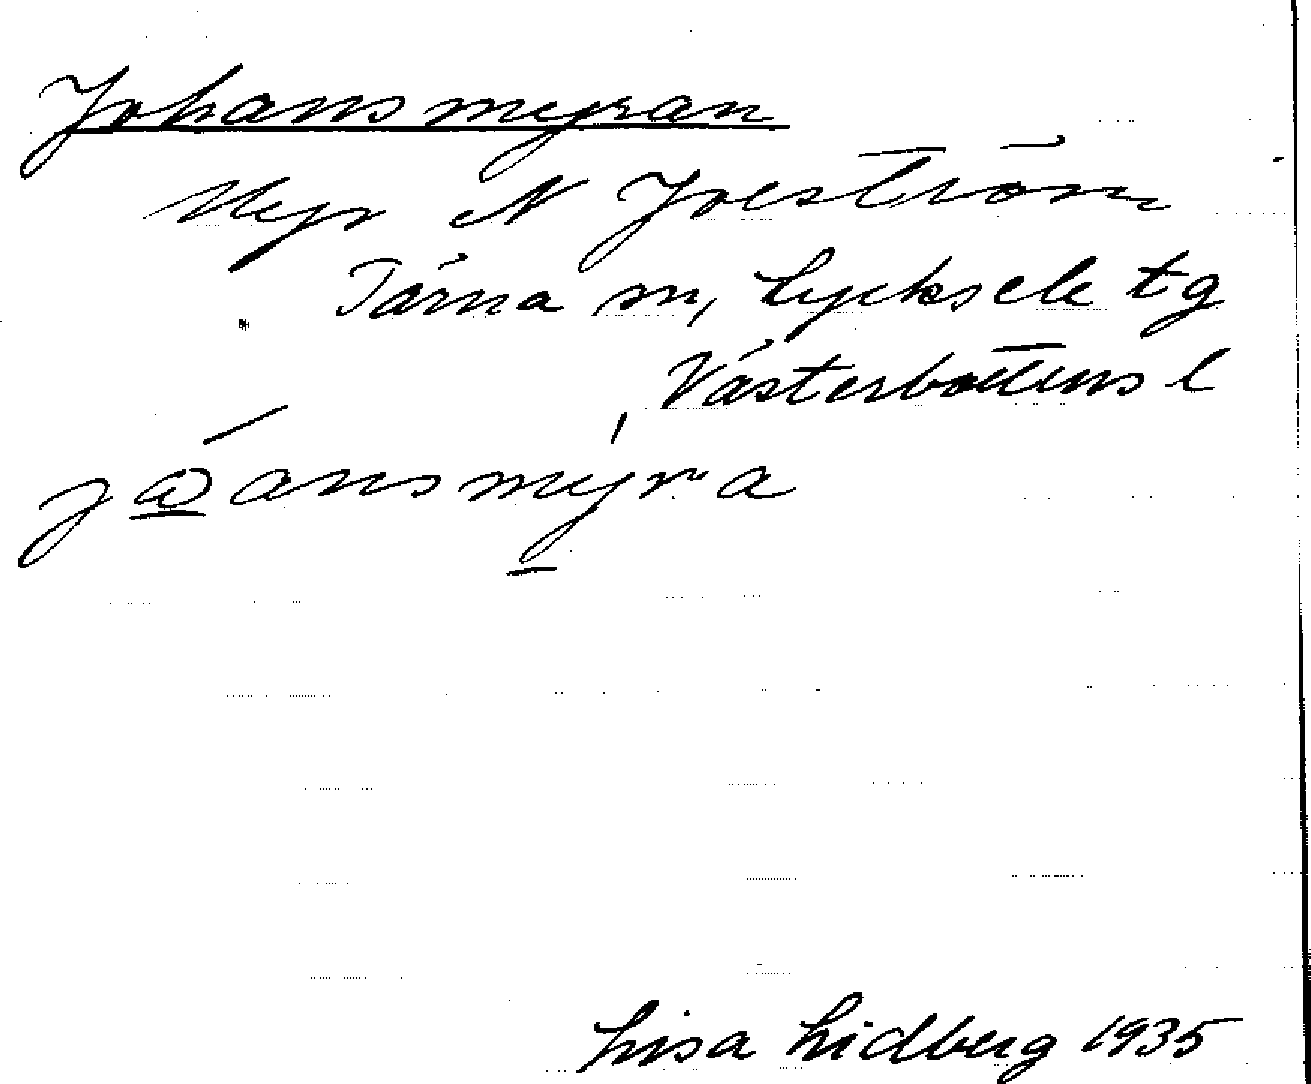 Johansmyran
Myr N Joeström
Tärna sn, Lycksele tg
Västerbottens l
jωansmyra
Lisa Lidberg 1935